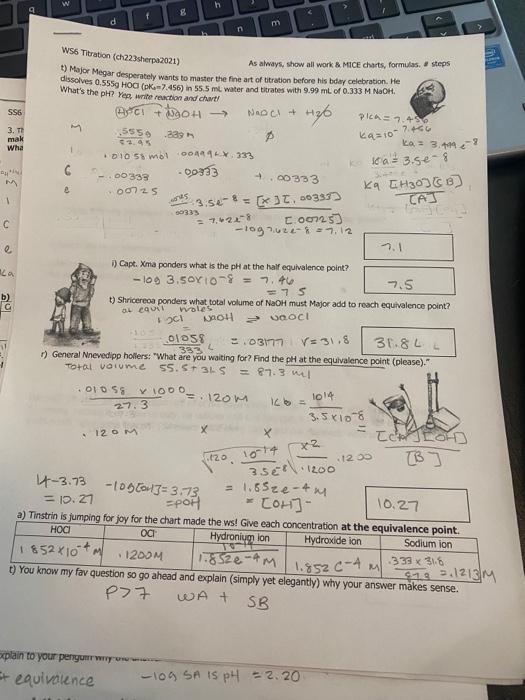 WS6 Titration (ch223sherpa2021)
As always, show all work & MICE charts, formulas. # steps
t) Major Megar desperately wants to master the fine art of titration before his bday celebration. He
dissolves 0.555g HOCl (pKa=7.456) in 55.5 mL water and titrates with 9.99 mL of 0.333 M NaOH.
What's the pH? Yep, write reaction and chart!
HOCl + NaOH → NaOCl + H2O
pKa = 7.456
Ka=10^-7.456
Ka = 3.499 e-8
Ka = 3.5e-8
Ka [H3O][SB]
[A]
M .555g .333M ø
52.45
I .01058 mol .00999L x .333
C -.00333 -.00333 +.00333
e .00725
3.5e-8 = [x][.00333]
[.00725]
.00333
= 7.62e-8
-log 7.62e-8 = 7.12
7.1
i) Capt. Xma ponders what is the pH at the half equivalence point?
-log 3.50x10^-8 = 7.46
= 7.5
7.5
t) Shricereoa ponders what total volume of NaOH must Major add to reach equivalence point?
at equil moles
HOCl NaOH ⇌ NaOCl
.01058
333
= .03177 V=31.8
31.8L
r) General Nnevedipp hollers: "What are you waiting for? Find the pH at the equivalence point (please)."
Total volume 55.5+31.8 = 87.3 ml
.01058 x 1000 = .120M
87.3
Kb = 10^14
3.5x10^-8
. 120M x x
= [OH]
[B]
.120 10^-14 x^2
3.5e-8 .1200
.1200
= 1.852e-4 M
= [OH]-
14-3.73
= 10.27
-log[OH]=3.73
=pOH
10.27
a) Tinstrin is jumping for joy for the chart made the ws! Give each concentration at the equivalence point.
HOCl OCl- Hydronium ion Hydroxide ion Sodium ion
1.852x10^-4 M .1200M 10^-14
1.852e-4 M 1.852 e-4 M .333 x 31.8
87.3 = .1213M
t) You know my fav question so go ahead and explain (simply yet elegantly) why your answer makes sense.
P>7 WA + SB
xplain to your penguin
equivalence -log SA is pH = 2.20
SS6
3.
mak
Wha
M
I
C
e
Ka
b)